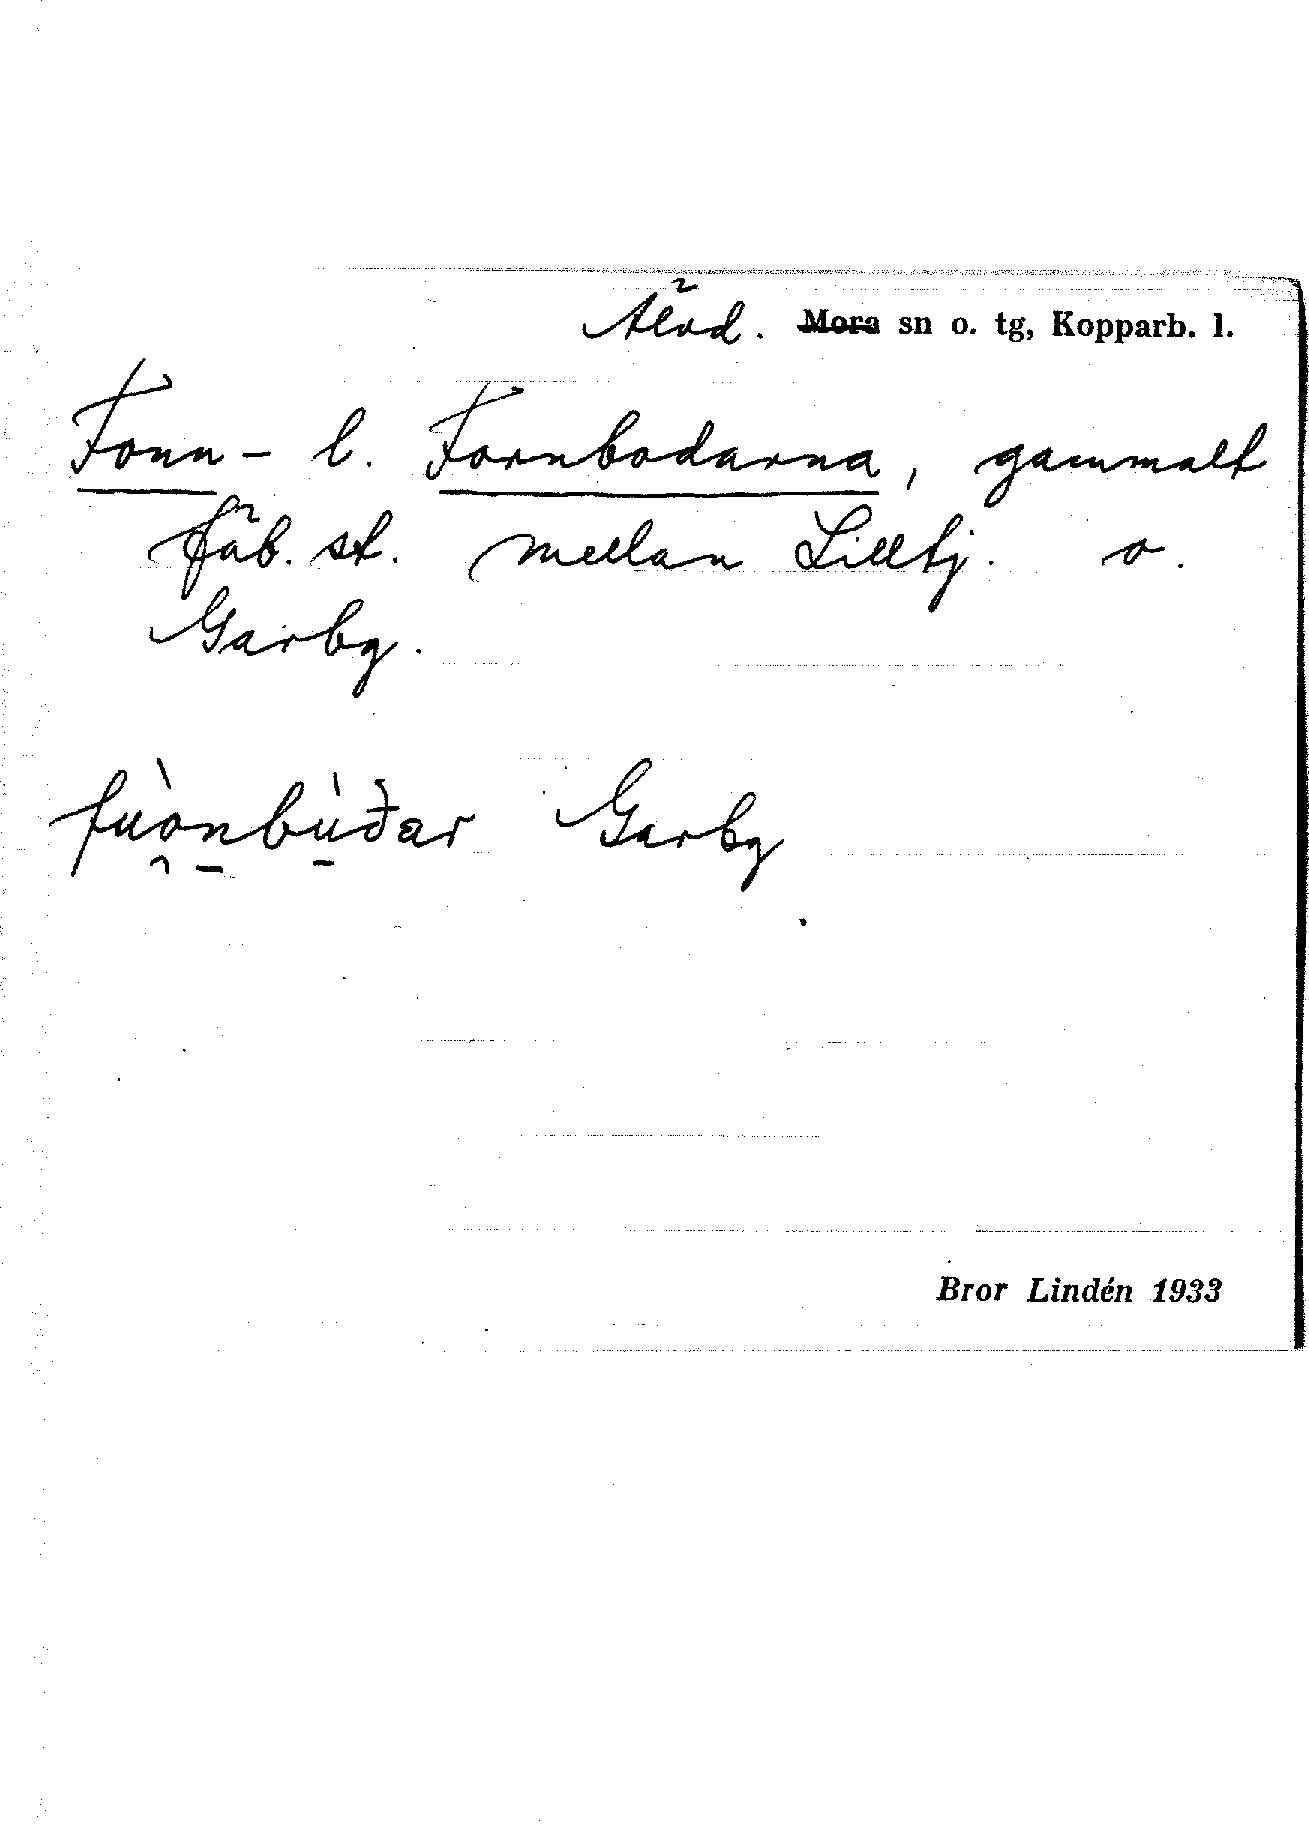 Älvd. Mora sn o. tg, Kopparb. l.
Fonn- l. Fornbodarna, gammalt
fäb. st. mellan Lilltj. o.
Garbg.
fùo̯n̠bù̠ðar Garbg
Bror Lindén 1933